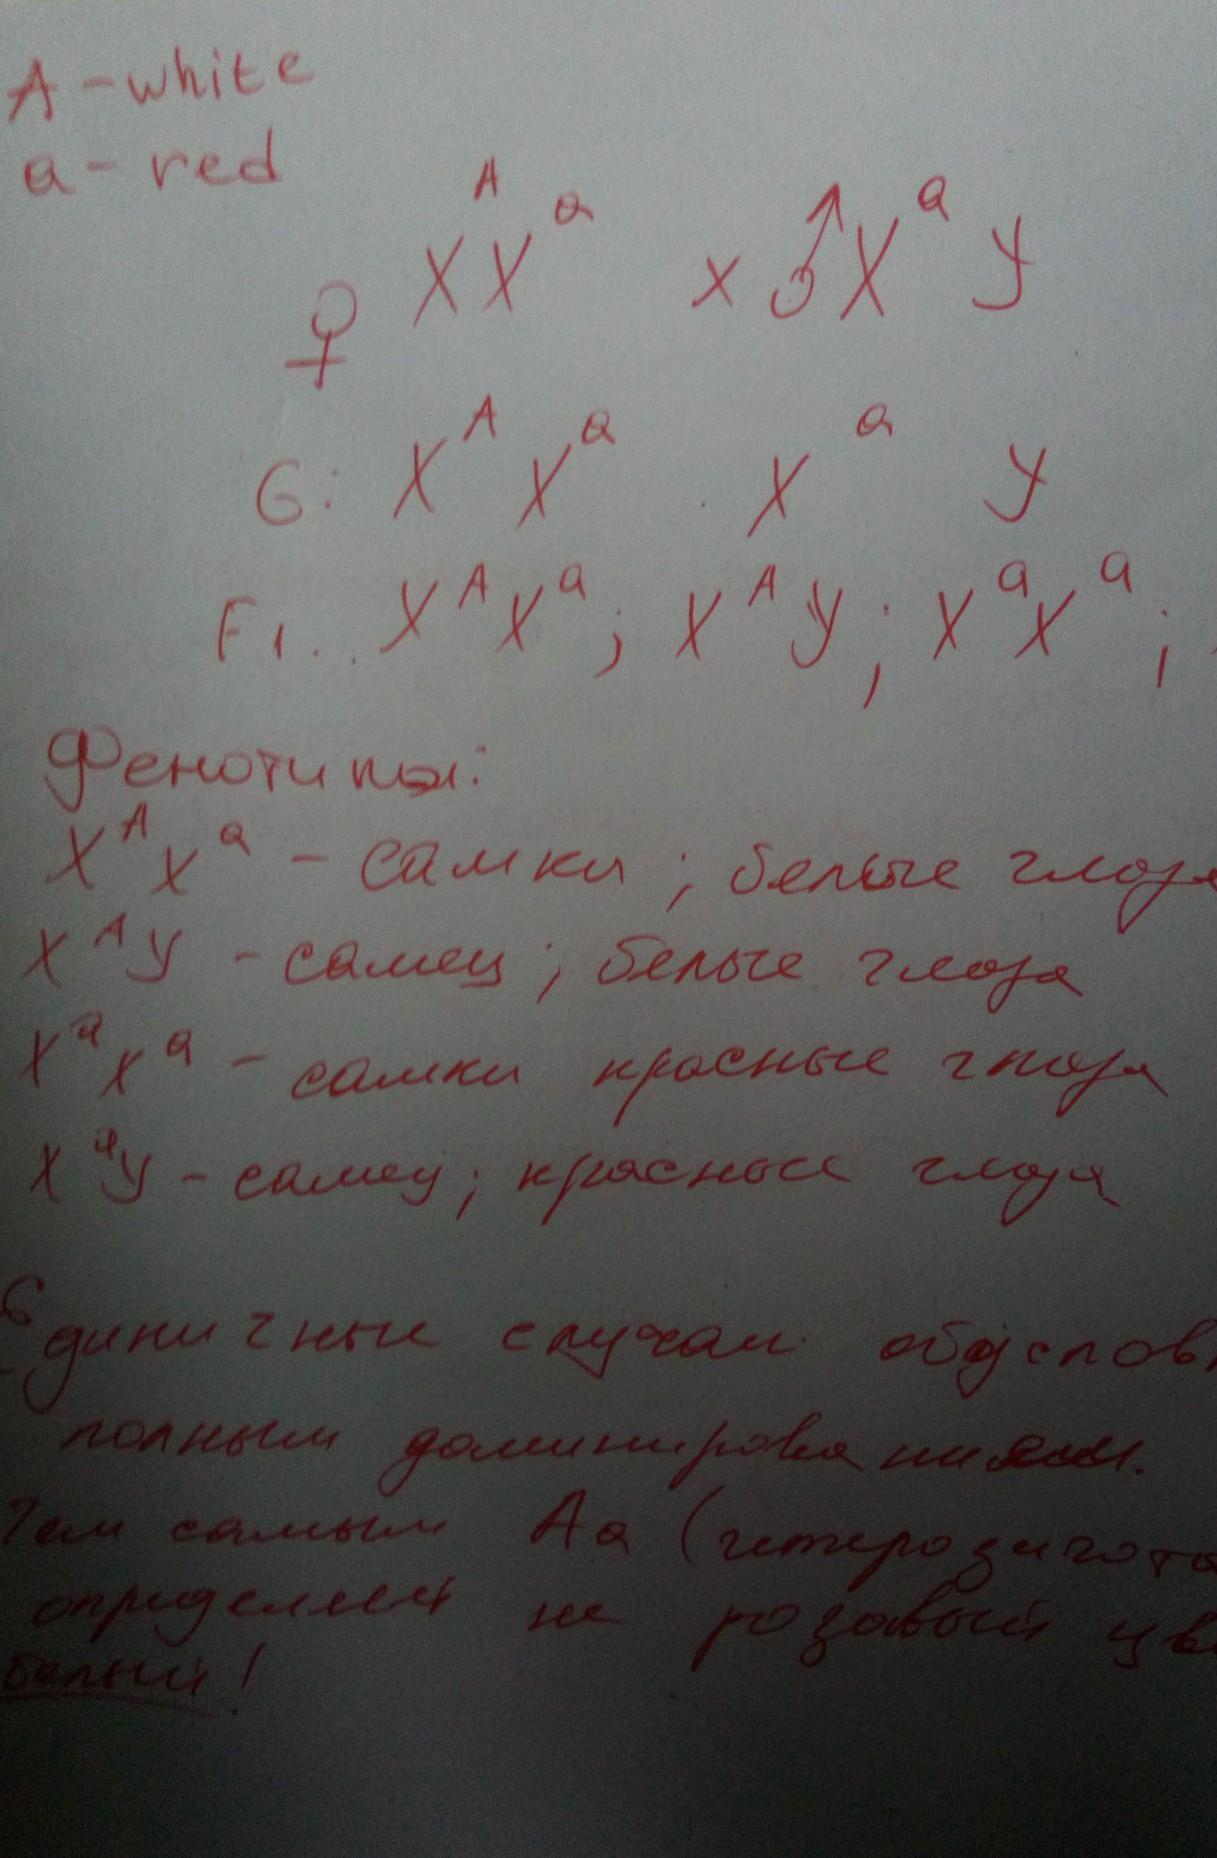 A - white
a - red
♀ X X^A ^a x ♂ X^a У
G: X^A X^a X^a У
F1. X^A X^a ; X^A У ; X^a X^a ;
Фенотипы:
X^A X^a - самки ; белые глаза
X^A У - самец ; белые глаза
X^a X^a - самки красные глаза
X^a У - самец ; красные глаза
Единичные случаи обуслов
полным доминированием.
Тем самым Аа (гетерозигота
определяет не розовый цв
белый!